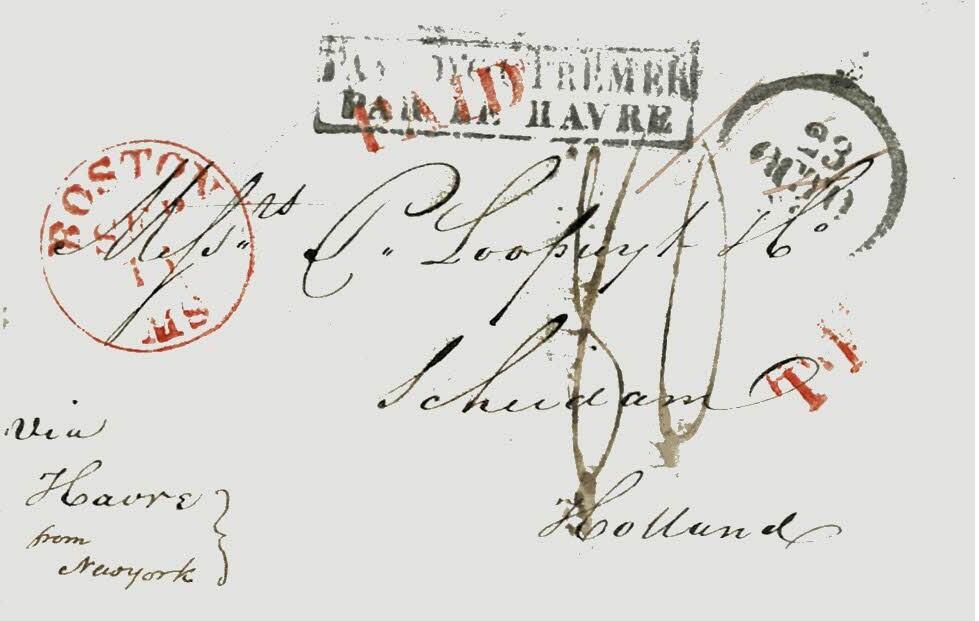 PAYS D'OUTREMER
PAR LE HAVRE
PAID
BOSTON
17
MS
23
Messrs P. Loopuyt
T.1
Scheidam
Holland
via
Havre
from
Newyork